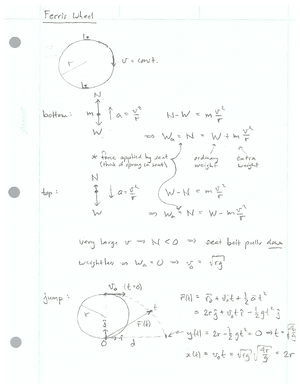 Ferris Wheel
r
v = const.
bottom:
N
m
W
↑ a = v²/r
N-W = m v²/r
⇒ Wₐ = N = W + m v²/r
* force applied by seat
(think of spring in seat)
ordinary weight
extra weight
top:
N
W
↓ a = v²/r
W-N = m v²/r
⇒ Wₐ = N = W - m v²/r
very large v → N < 0 ⇒ seat belt pulls down
weightless ⇒ Wₐ = 0 ⇒ v₀ = √rg
jump:
v₀ (t=0)
r
t
r(t)
0
d
r(t) = r₀ + v₀t + ½ at²
= 2rĵ + v₀t î - ½gt² ĵ
y(t) = 2r - ½gt² = 0 ⇒ t =
x(t) = v₀t = √rg √4r/g = 2r